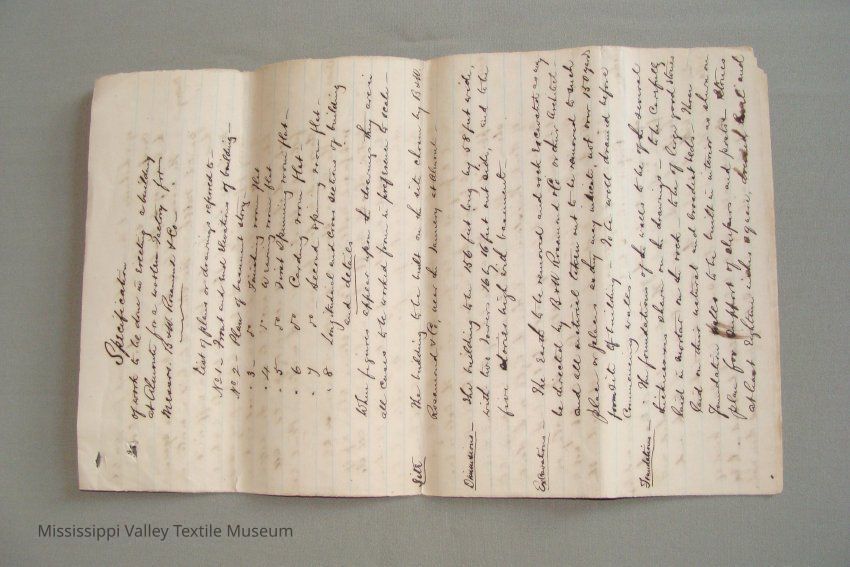 Specification
of work to be done in erecting a building
at Almonte for a woollen factory for
Messrs. B & W Rosamond & Co.
List of plans or drawings referred to
No 1 - Front and end elevations of building -
No 2 - Plan of basement story
" 3 do Finishing room flat
" 4 do Weaving room flat
" 5 do First Spinning room flat -
" 6 do Carding room flat -
" 7 do Second Spinning room flat -
" 8 Longitudinal and cross sections of building
and details
When figures appear upon the drawings they are in
all cases to be worked from in preference to scale -
Site The building to be built on the site chosen by B & W
Rosamond & Co, near the Foundery at Almonte -
Dimensions - The building to be 156 feet long by 58 feet wide,
with two 16 by 16 feet out side, and to be
five stories high and basement
Excavations - The earth to be removed and rock excavated as may
be directed by B & W Rosamond & Co or their Architect
and all material taken out to be removed to such
place or places as they may indicate, not over 150 yards
from site of building - To be well drained before
Commencing walling -
Foundations - The foundations of the walls to be of the several
thicknesses shown on the drawings - to be carefully
laid in mortar on the rock to be of large good stones
laid on their natural and broadest beds - Those
foundation walls to be built in interior as shown on
plan for support of sleepers and posts stones
at least Eighteen inches square, and
Mississippi Valley Textile Museum